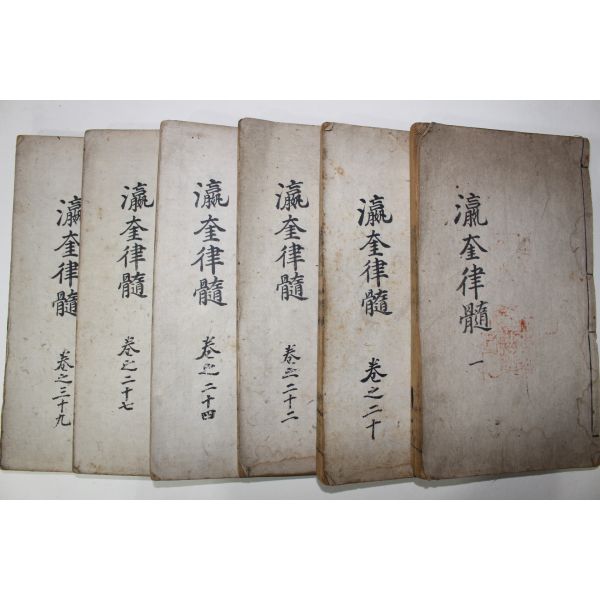 瀛奎律髓
一
瀛奎律髓
卷之二十
瀛奎律髓
卷之二十二
瀛奎律髓
卷之二十四
瀛奎律髓
卷之二十七
瀛奎律髓
卷之三十九